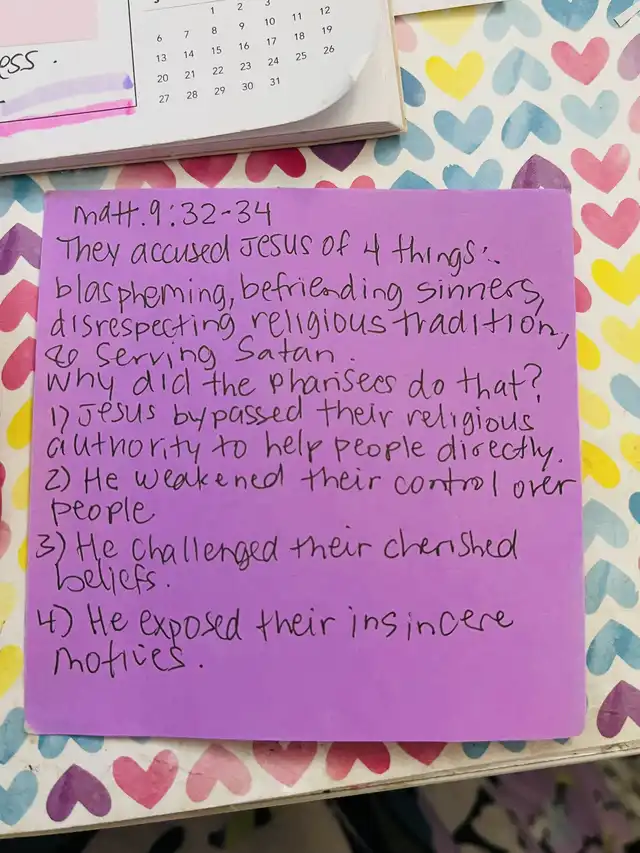 ess.
1 2 3
6 7 8 9 10 11 12
13 14 15 16 17 18 19
20 21 22 23 24 25 26
27 28 29 30 31
matt. 9:32-34
They accused Jesus of 4 things:
blaspheming, befriending sinners,
disrespecting religious tradition,
& serving Satan.
Why did the pharisees do that?
1) Jesus bypassed their religious
authority to help people directly.
2) He weakened their control over
people
3) He challenged their cherished
beliefs.
4) He exposed their insincere
motives.